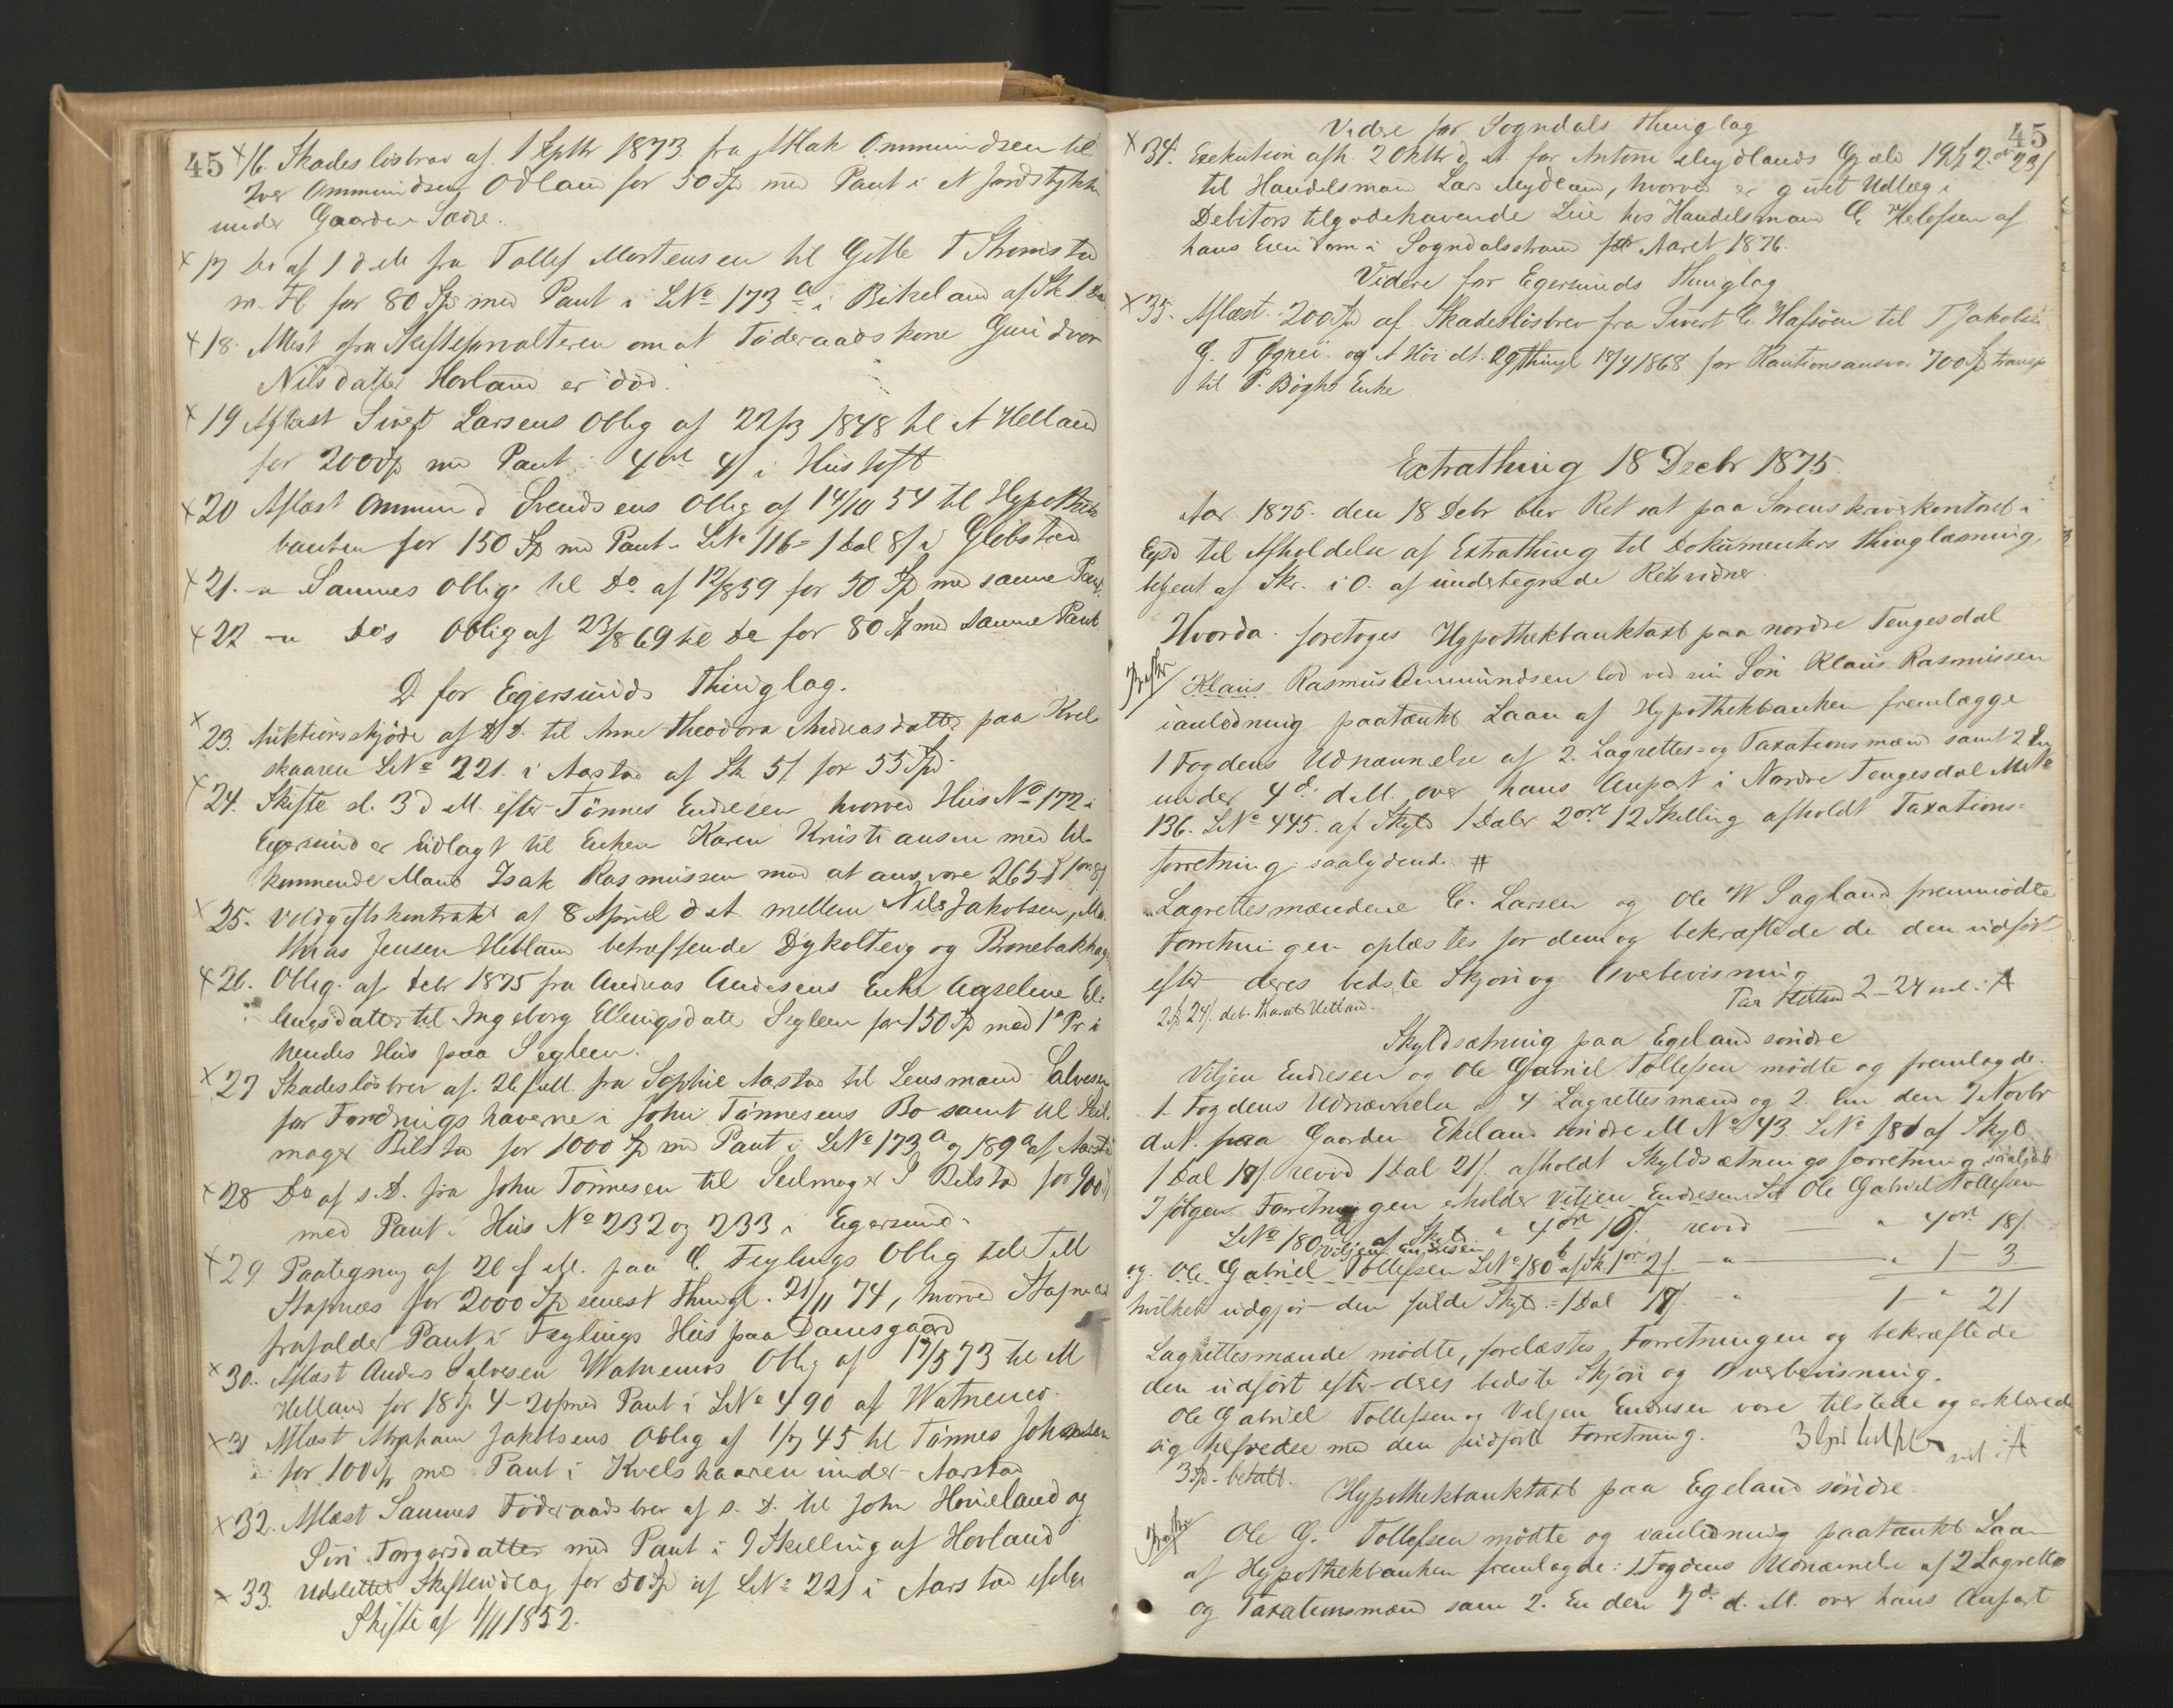 45 × 16. Skadeslösbrev af 1 Septbr 1873 fra Ommundsen til
Iver Ommundsen Odland for 50 Spd med Pant i et Jordstykke
under Gaarden Sædre.
× 17 Do af 1 d M fra Tollef Mortensen til Gitle T Skomsto
m. Fl for 80 Spd med Pant i LNo 173 a i Birkeland af Sk 1 Da
× 18. Attest fra Skifteforvalteren om at Föderaadskone Guri
Nilsdatter Hovland er död.
× 19 Aflæst Sivert Larsens Oblig af 22/3 1848 til A Helland
for 200 Spd med Pant i 4 ort 4 s i Hustoft
× 20 Aflæst Ommund Svendsens Oblig af 14/10 54 til Hypothek
banken for 150 Spd med Pant i LNo 116 = 1 Dal 8 s i Göbstad
× 21. " Sammes Oblig. til Do af 12/8 59 for 50 Spd med samme Pant.
× 22 " Do's Oblig af 23/8 69 til Do for 80 Spd med samme Pant
D. for Egersunds Thinglag.
× 23. Auktionsskjöde af d D. til Anne Theodora Andreasdatter paa Kvel-
skaaren LNo 221. i Aarstad af Sk 5 s for 55 Spd.
× 24. Skifte sl. 3 d M. efter Tönnes Endresen hvorved Hus No 172 i
Egersund er udlagt til Enken Karen Kristiansen med til-
kommende Mand Isak Rasmussen mod at ansvare 265 1 ort 8 s
× 25. Veddgiftskontrakt af 8 April d A. mellem Nils Jakobsen,
Thomas Jensen Hetland betræffende Dykolteig og Bronebakhag
× 26. Oblig. af Debr 1875 fra Andreas Andersens Enke Aaselene El-
lingsdatter til Ingeborg Ellingsdatter Sigleen for 150 Spd med 1ste Pr i
hendes Hus paa Sogleen.
× 27 Skadeslösbrev af 26 f M. fra Sophie Aarstad til Lensmand Salvesen
for Fordringshaverne i John Tönnesens Bo samt til Seil-
mager Bilstad for 1000 Spd med Pant i LNo 173 a og 189 a af Aarstad
× 28 Do af s. D. fra John Tönnesen til Seilmager I Bilstad for 900
med Pant i Hus No 232 og 233 i Egersund.
× 29 Paategning af 26 f M. paa C. Feylings Oblig til T M
Stapnæs for 2000 Spd senest thingl. 21/11 74, hvorved Stapnæs
frafalder Pant i Feylings Hus paa Damsgaard
× 30. Aflæst Anders Salvesen Watnemos Oblig af 19/5 73 til M
Helland for 18 Spd 4-20 s med Pant i LNo 490 af Watnemo.
× 31 Aflæst Abraham Jakobsens Oblig af 1/7 45 til Tönnes Johnsen
for 100 Spd med Pant i Kvelskaaren under Aarstad
× 32. Aflæst Sammes Föderaadsbrev af s. D. til John Hovland og
Siri Torgersdatter med Pant i 9 Skilling af Hovland
× 33. Udslettet Skifteudlæg for 50 Spd af LNo 221 i Aarstad ifölge
Skifte af 1/11 1852.
45
Videre for Sogndals Thinglag
× 34. Exekution afh. 2 Oktbr d A. for Antoni Mydlands Gjæld 19 Spd 2 ort 23 s
til Handelsmand Lars Mydland, hvorved er givet Udlæg i
Debitors tilgodehavende Leie hos Handelsmand C Helofsen af
hans Eiendom i Sogndalsstrand for Aaret 1876.
Videre for Egersunds Thinglag
× 35. Aflæst. 200 Spd af Skadeslösbrev fra Sivert C. Hafsöen til T Jakobsen
G. T Ögrei og A Höi dt. 29 thingl 18/4 1868 for Kautionsansvar 700 Spd transp
til P. Böghs Enke
Extrathing 18 Decbr 1875.
Aar 1875. den 18 Debr blev Ret sat paa Sorenskriverkontoret i
Egsd til Afholdelse af Extrathing til Dokumenters Thinglæsning,
betjent af Skr. i O. af undertegnede Retsvidner.
Hvorda. foretoges Hypothekbanktaxt paa nordre Tengesdal
Klaus Rasmus Ommundsen lod ved sin Sön Klaus Rasmussen
i anledning paatænkt Laan af Hypothekbanken fremlægge
1 Fogdens Udnævnelse af 2. Lagrettes- og Taxationsmænd samt 2 En
under 4de d M. over hans Anpart i Nordre Tengesdal MNo
136. LNo 445. af Skyld 1 Daler 2 ort 12 Skilling afholdt Taxations-
forretning saalydende. #
Lagrettesmændene C. Larsen og Ole W Sagland fremmödte
Forretningen oplæstes for dem og bekræftede de den udfört
efter deres bedste Skjön og Overbevisning
2 Spd 24 s. deb. Tharald Hetland. Tax 2-24 ml. A
Skyldsætning paa Egeland söndre
Viljen Endresen og Ole Gabriel Tollefsen mödte og fremlagde.
1. Fogdens Udnævnelse af 4 Lagrettesmænd og 2. En den 7 Novbr
d A. paa Gaarden Ekeland söndre M No 43. LNo 180 af Skyld
1 Dal 18 s. revid 1 Dal 21 s. afholdt Skyldsætningsforretning saalyd
Ifölge Forretningen erholder Viljen Endresen Ole Gabriel Tollefsen
LNo 180 a af Skyld " 4 ort 16 s. revid — " 4 ort 18 s.
Viljen Endresen
og Ole Gabriel Tollefsen LNo 180 b af Sk. 1 ort 2 s. — " — " 1 - 3
hvilket udgjör den fulde Skyld = 1 Dal 18 s. " 1 - " 21
Lagrettesmænde mödte, forelæstes Forretningen og bekræftede
den udfört efter deres bedste Skjön og Overbevisning.
Ole Gabriel Tollefsen og Viljen Endresen vare tilstede og erklærede
sig tilfredse med den udförte Forretning.
3 Spd. betalt.
Hypothekbanktaxt paa Egeland söndre.
Ole G. Tollefsen mödte og i anledning paatænkt Laan
af Hypothekbanken fremlagde: 1 Fogdens Udnævnelse af 2 Lagrettes
og Taxationsmænd sam 2. En den 7de d. M. over hans Anpart